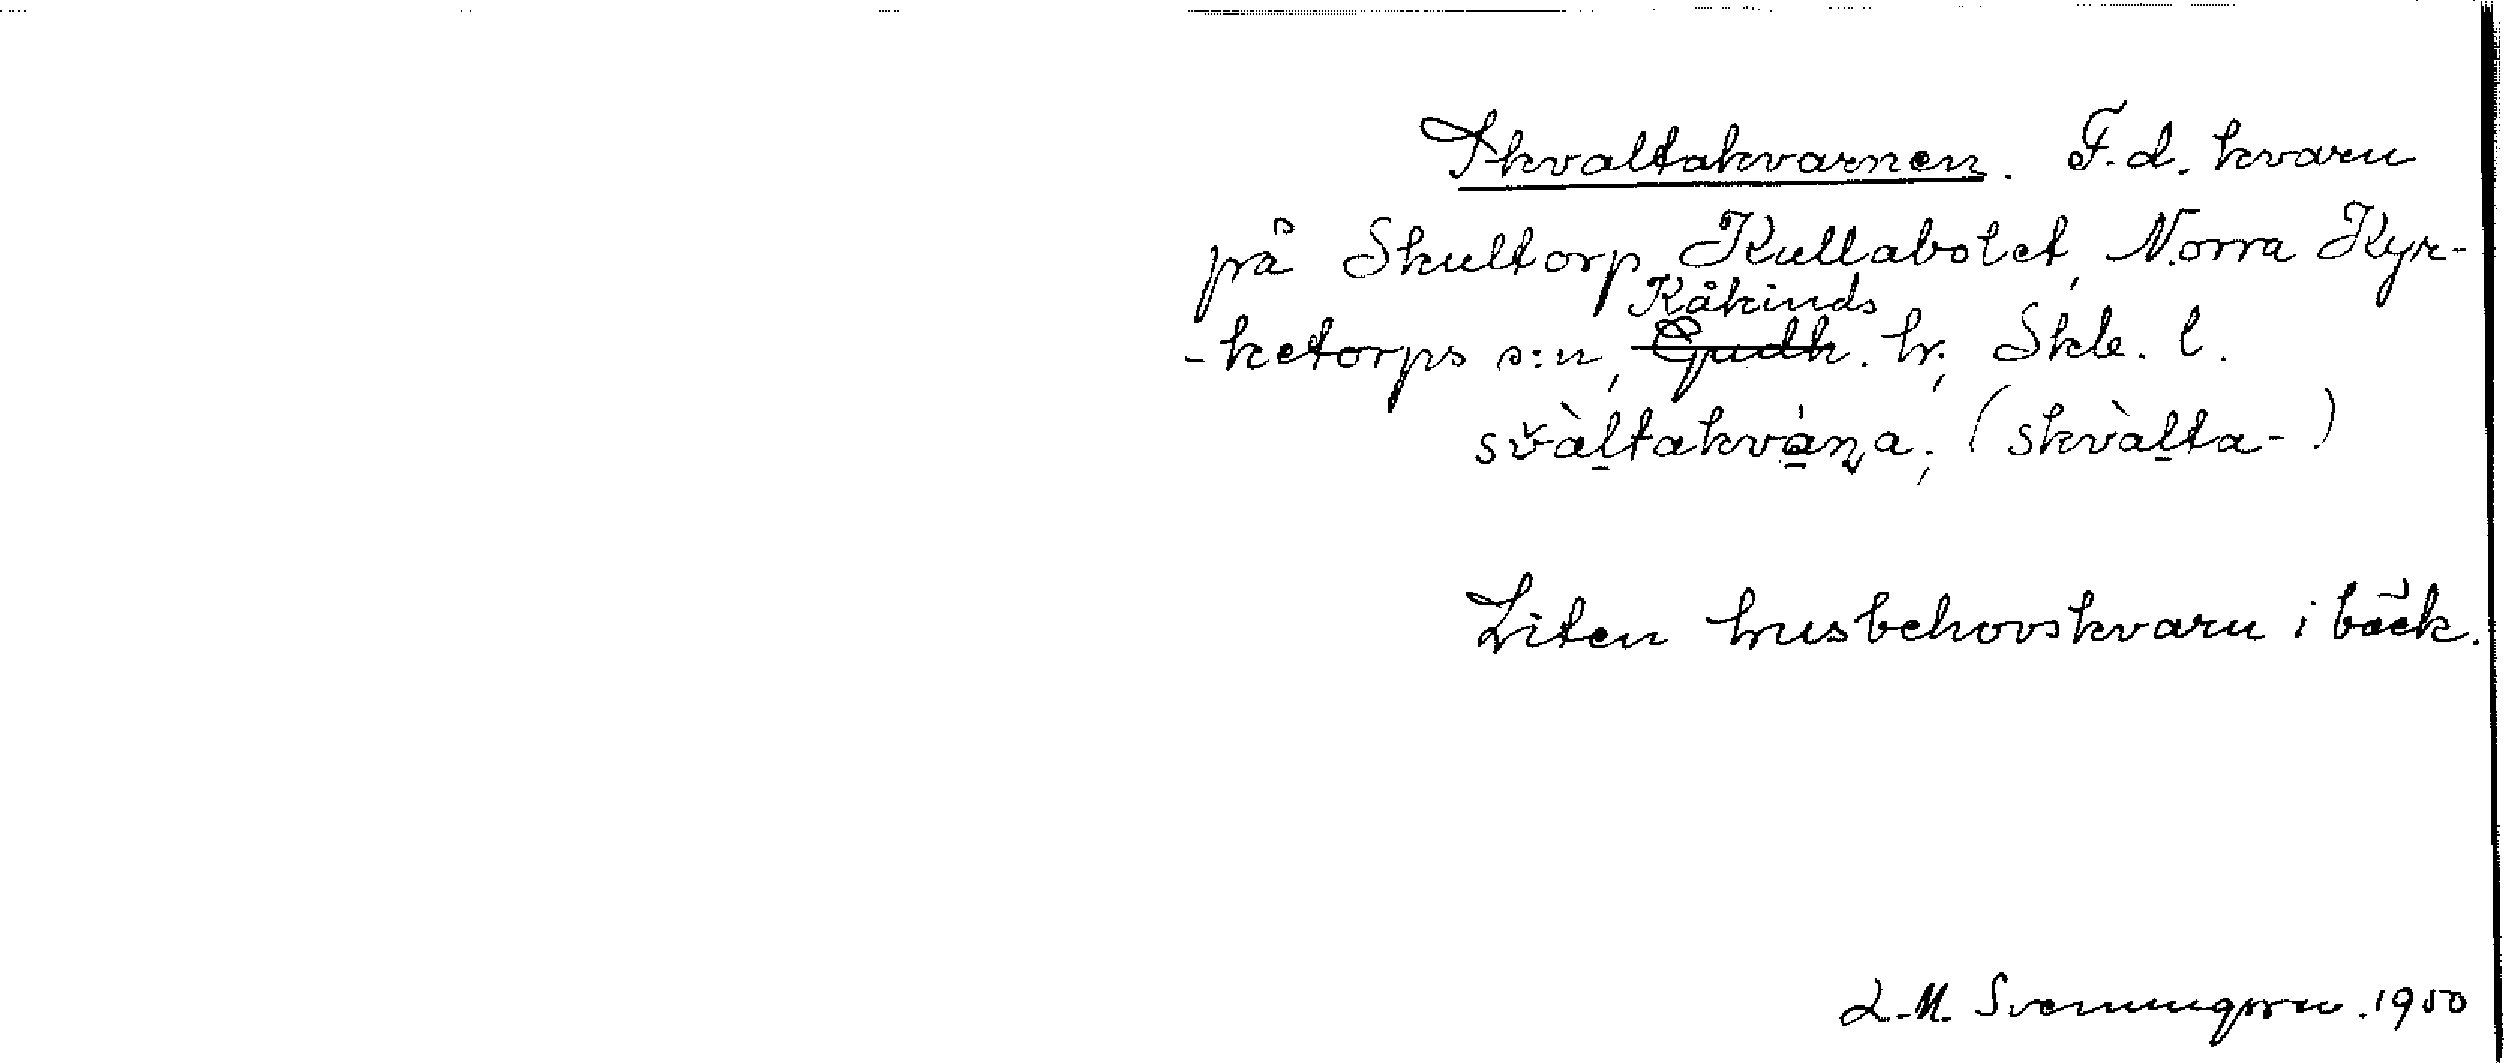 Skvaltakvarnen. F.d. kvarn
på Skultorp Kullabolet, Norra Kyr-
Kåkinds
-ketorps s:n, Gudh. hr; Skbl. l.
svàltakvána; (skvàlta-)
Liten husbehovskvarn i bäck.
L-M. Svenungsson. 1950